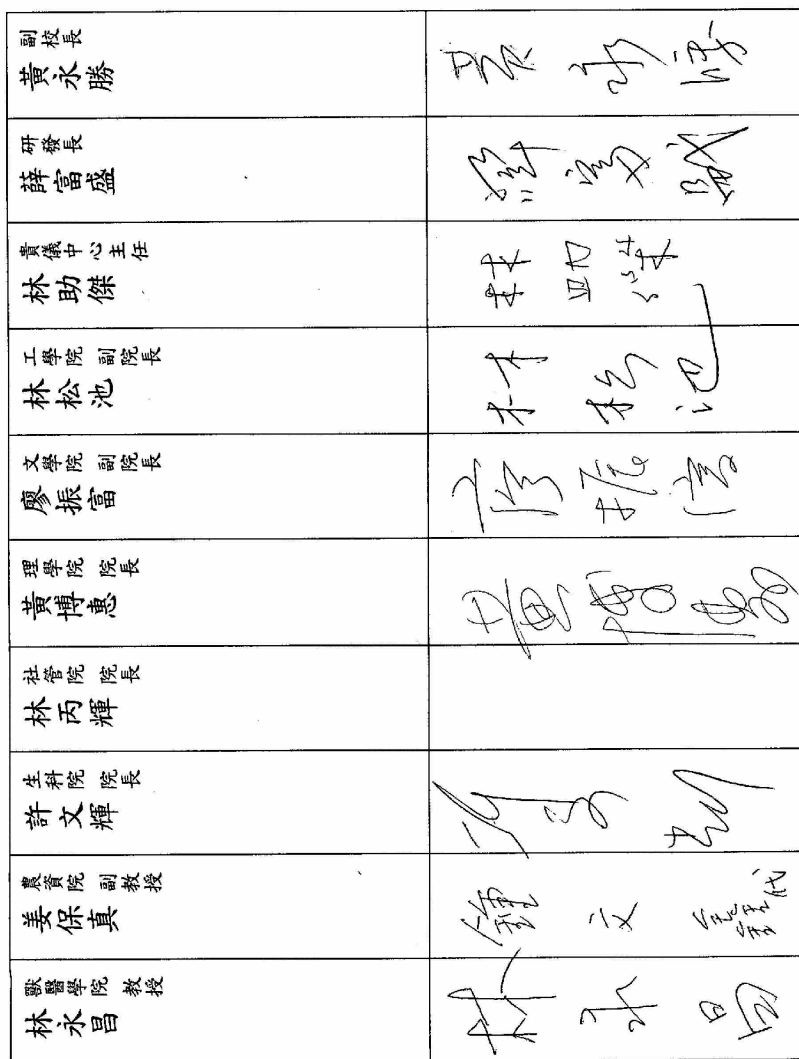 副校長
黃永勝
黃永勝
研發長
薛富盛
薛富盛
貴儀中心主任
林助傑
林助傑
工學院 副院長
林松池
林松池
文學院 副院長
廖振富
廖振富
理學院 院長
黃博惠
黃博惠
社管院 院長
林丙輝
生科院 院長
許文輝
農資院 副教授
姜保真
鍾文鑫代
獸醫學院 教授
林永昌
林永昌